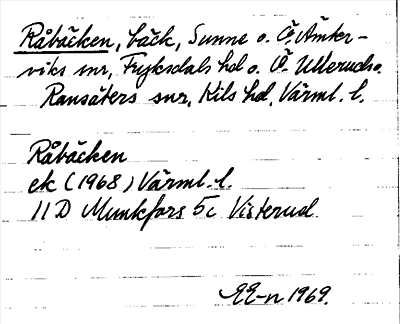 Råbäcken, bäck, Sunne o. Ö. Ämter-
viks snr, Fryksdals hd o. Ö. Ullerud o.
Ransäters snr, Kils hd, Värml. l.
Råbäcken
ek (1968) Värml. l.
11 D Munkfors 5c Visterud.
EE-n 1969.